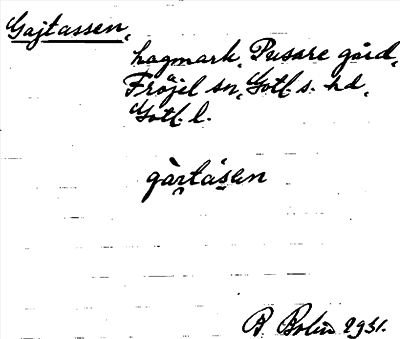 Gajtassen,
hagmark, Pusare gård,
Fröjel sn, Gotl. s. hd,
Gotl. l.
gàṛtásen
B. Bolin 1931.